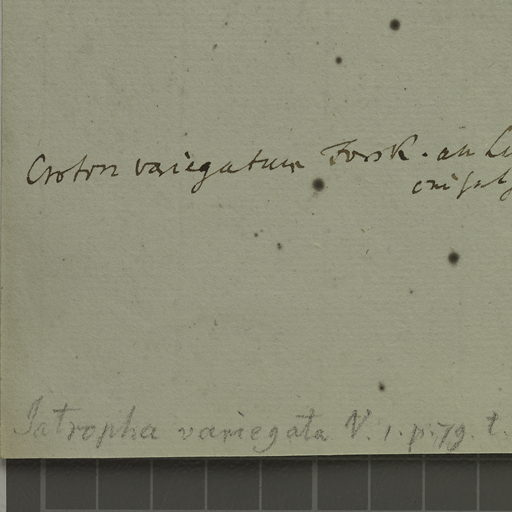 Croton variegatum Forsk. an
Jatropha variegata V. 1. p. 79. t.